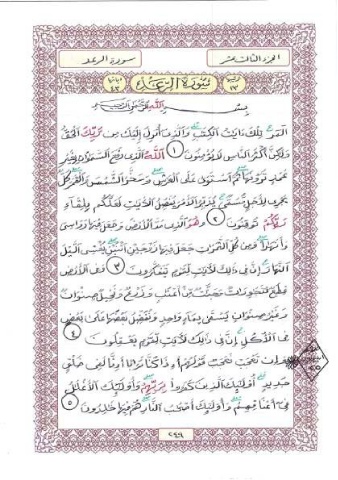 الجزء الثالث عشر
سورة الرعد
سورة الرعد
بسم الله الرحمن الرحيم
المر تلك ءايت الكتب والذى أنزل إليك من ربك الحق
ولكن أكثر الناس لا يؤمنون ١ الله الذى رفع السموت بغير
عمد ترونها ثم استوى على العرش وسخر الشمس والقمر كل
يجرى لأجل مسمى يدبر الأمر يفصل الءايت لعلكم بلقاء
ربكم توقنون ٢ وهو الذى مد الأرض وجعل فيها روسى
وأنهرا ومن كل الثمرت جعل فيها زوجين اثنين يغشى اليل
النهار إن فى ذلك لءايت لقوم يتفكرون ٣ وفى الأرض
قطع متجورت وجنت من أعنب وزرع ونخيل صنوان
وغير صنوان يسقى بماء وحد ونفضل بعضها على بعض
فى الأكل إن فى ذلك لءايت لقوم يعقلون ٤
وإن تعجب فعجب قولهم أءذا كنا تربا أءنا لفى خلق
جديد أولئك الذين كفروا بربهم وأولئك الأغلل
فى أعناقهم وأولئك أصحب النار هم فيها خلدون ٥
٢٤٩